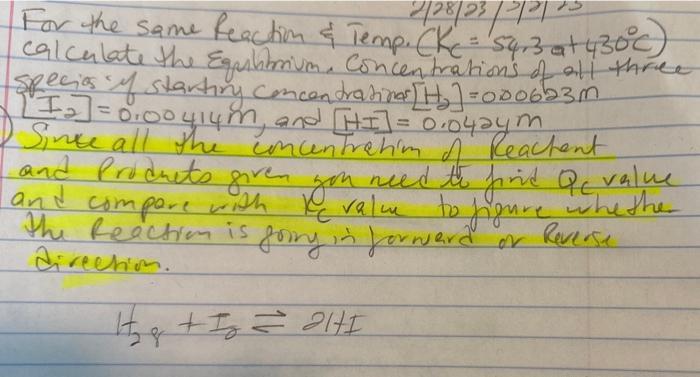 2/28/23
For the same Reaction & Temp. (Kc = 54.3 at 430°C)
calculate the Equilibrium. Concentrations of all three
species if starting concentrations [H2] = 0.00623m
[I2] = 0.00414m, and [HI] = 0.0424m
Since all the concentration of Reactent
and Products given you need to find Qc value
and compare with Kc value to figure whether
the Reaction is going in forward or Reverse
direction.
H2 + I2 ⇌ 2HI